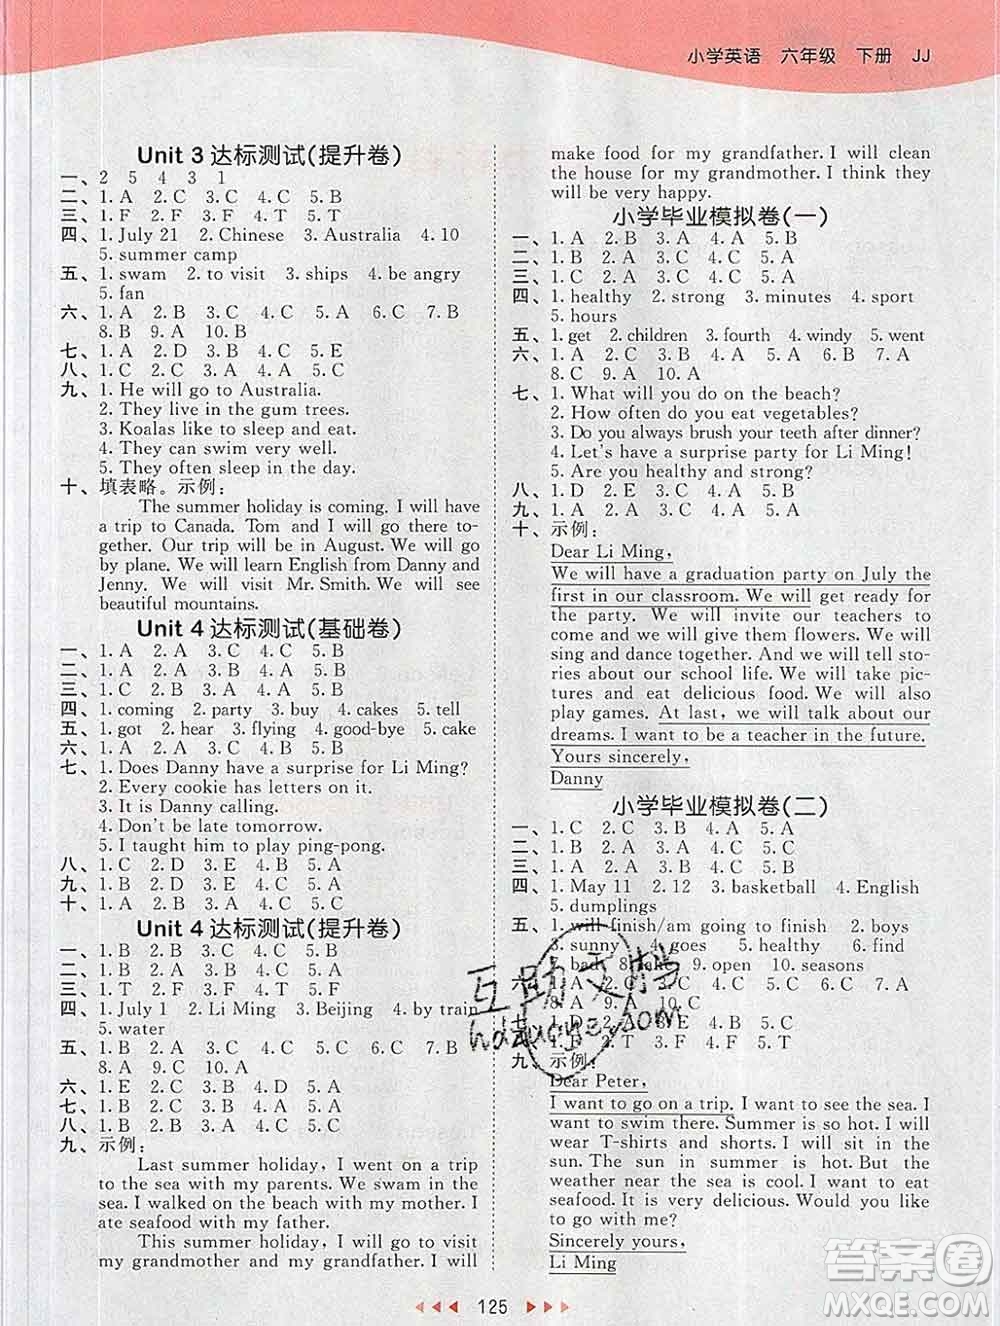 小学英语 六年级 下册 JJ
Unit 3 达标测试(提升卷)
一、2 5 4 3 1
二、1. A 2. C 3. C 4. C 5. B
三、1. F 2. F 3. F 4. T 5. T
四、1. July 21 2. Chinese 3. Australia 4. 10
5. summer camp
五、1. swam 2. to visit 3. ships 4. be angry
5. fan
六、1. A 2. B 3. C 4. C 5. A 6. C 7. B
8. B 9. A 10. B
七、1. A 2. D 3. B 4. C 5. E
八、1. C 2. C 3. A 4. A 5. C
九、1. He will go to Australia.
2. They live in the gum trees.
3. Koalas like to sleep and eat.
4. They can swim very well.
5. They often sleep in the day.
十、填表略。示例：
The summer holiday is coming. I will have
a trip to Canada. Tom and I will go there to-
gether. Our trip will be in August. We will go
by plane. We will learn English from Danny and
Jenny. We will visit Mr. Smith. We will see
beautiful mountains.
Unit 4 达标测试(基础卷)
一、1. A 2. A 3. C 4. C 5. B
二、1. A 2. A 3. C 4. A 5. B
三、1. C 2. B 3. A 4. A 5. B
四、1. coming 2. party 3. buy 4. cakes 5. tell
五、1. got 2. hear 3. flying 4. good-bye 5. cake
六、1. A 2. A 3. C 4. B 5. B
七、1. Does Danny have a surprise for Li Ming?
2. Every cookie has letters on it.
3. It is Danny calling.
4. Don't be late tomorrow.
5. I taught him to play ping-pong.
八、1. C 2. D 3. E 4. B 5. A
九、1. B 2. D 3. E 4. C 5. A
十、1. A 2. C 3. B 4. C 5. B
Unit 4 达标测试(提升卷)
一、1. B 2. B 3. C 4. A 5. B
二、1. C 2. A 3. B 4. C 5. A
三、1. T 2. F 3. F 4. T 5. F
四、1. July 1 2. Li Ming 3. Beijing 4. by train
5. water
五、1. B 2. A 3. C 4. C 5. B 6. C 7. B
8. A 9. A 10. C
六、1. E 2. C 3. B 4. D 5. A
七、1. B 2. C 3. C 4. A 5. A
八、1. B 2. C 3. A 4. C 5. B
九、示例：
Last summer holiday, I went on a trip
to the sea with my parents. We swam in the
sea. I walked on the beach with my mother. I
ate seafood with my father.
This summer holiday, I will go to visit
my grandmother and my grandfather. I will
make food for my grandfather. I will clean
the house for my grandmother. I think they
will be very happy.
小学毕业模拟卷(一)
一、1. A 2. B 3. A 4. A 5. B
二、1. B 2. A 3. C 4. C 5. A
三、1. C 2. C 3. B 4. C 5. A
四、1. healthy 2. strong 3. minutes 4. sport
5. hours
五、1. get 2. children 3. fourth 4. windy 5. went
六、1. A 2. C 3. B 4. A 5. B 6. C 7. A
8. C 9. A 10. A
七、1. What will you do on the beach?
2. How often do you eat vegetables?
3. Do you always brush your teeth after dinner?
4. Let's have a surprise party for Li Ming!
5. Are you healthy and strong?
八、1. D 2. E 3. C 4. B 5. A
九、1. A 2. A 3. B 4. C 5. C
十、示例：
Dear Li Ming,
We will have a graduation party on July the
first in our classroom. We will get ready for
the party. We will invite our teachers to
come and we will give them flowers. We will
sing and dance together. And we will tell sto-
ries about our school life. We will take pic-
tures and eat delicious food. We will also
play games. At last, we will talk about our
dreams. I want to be a teacher in the future.
Yours sincerely,
Danny
小学毕业模拟卷(二)
一、1. C 2. C 3. B 4. A 5. A
二、1. B 2. A 3. C 4. C 5. A
三、1. A 2. A 3. B 4. C 5. B
四、1. May 11 2. 12 3. basketball 4. English
5. dumplings
五、1. will finish/am going to finish 2. boys
3. sunny 4. goes 5. healthy 6. find
bad 8. take 9. open 10. seasons
六、1. C 2. A 5. C 6. A 7. B
8. A 9. A 10. C
1. D 2. A E 4. F 5. B
1. B 2. T 4. B 5. T
九、示例：
Dear Peter,
I want to go on a trip. I want to see the sea. I
want to swim there. Summer is so hot. I will
wear T-shirts and shorts. I will sit in the
sun. The sun in summer is hot. But the
weather near the sea is cool. I want to eat
seafood. It is very delicious. Would you like
to go with me?
Sincerely yours,
Li Ming
125
互助文档
hdzuoye.com
答案圈
MXQE.COM